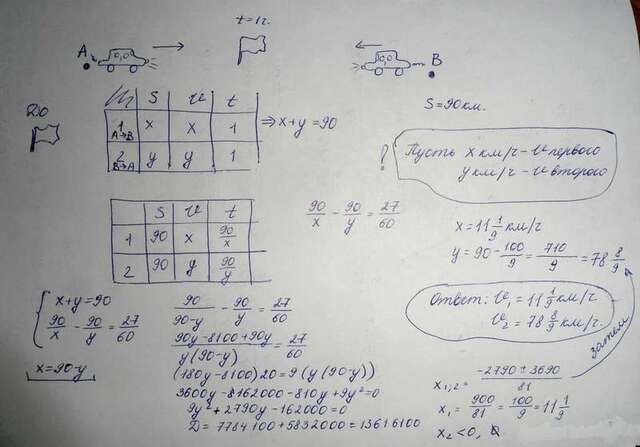 t=1ч.
A
B
S=90км.
S v t
1 A→B x x 1
2 B→A y y 1
⇒ x+y=90
Пусть x км/ч - v первого
y км/ч - v второго
S v t
1 90 x 90/x
2 90 y 90/y
90/x - 90/y = 27/60
x=11 1/9 км/ч
y=90 - 100/9 = 710/9 = 78 8/9
x+y=90
90/x - 90/y = 27/60
x=90-y
90/90-y - 90/y = 27/60
90y-8100+90y/y(90-y) = 27/60
(180y-8100)20=9(y(90-y))
3600y-8162000-810y+9y²=0
9y²+2790y-162000=0
D=7784100+5832000=13616100
Ответ: v₁=11 1/9 км/ч.
v₂=78 8/9 км/ч.
затем
x₁;₂= -2790±3690/81
x₁= 900/81 = 100/9 = 11 1/9
x₂<0,